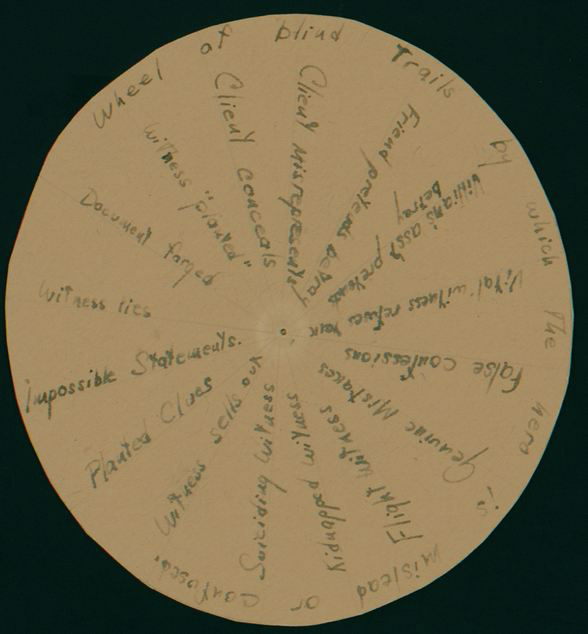 Wheel of blind Trails by which the hero is mislead or confused.
Client Misrepresents
Friend pretends betray
Villians ass't pretends betray
Vital witness refuses talk
False confessions
Genuine Mistakes
Flight witness
Kidnapped witness
Suiciding witness
Witness sells out
Planted Clues
Impossible Statements.
Witness lies
Document forged
Witness "planted"
Client conceals